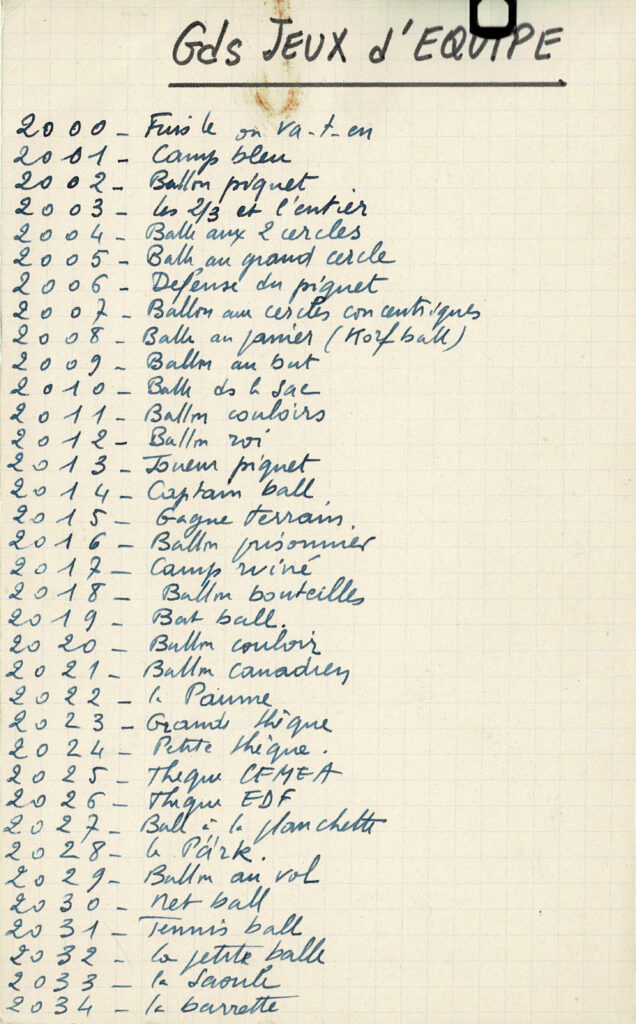 Gds JEUX d'EQUIPE
2000 - Fuis le ou va-t-en
2001 - Camp bleu
2002 - Ballon piquet
2003 - les 2/3 et l'entier
2004 - Balle aux 2 cercles
2005 - Balle au grand cercle
2006 - Defense du piquet
2007 - Ballon aux cercles concentriques
2008 - Balle au panier (Korfball)
2009 - Ballon au but
2010 - Balle ds le sac
2011 - Ballon couloirs
2012 - Ballon roi
2013 - Joueur piquet
2014 - Captain ball
2015 - Gagne terrain.
2016 - Ballon prisonnier
2017 - Camp ruiné
2018 - Ballon bouteilles
2019 - Bat ball.
2020 - Ballon couloir
2021 - Ballon canadien
2022 - la Paume
2023 - Grande thèque
2024 - Petite thèque.
2025 - Theque CEMEA
2026 - Theque EDF
2027 - Ball à la planchette
2028 - le Park.
2029 - Ballon au vol
2030 - Net ball
2031 - Tennis ball
2032 - la petite balle
2033 - la Saoule
2034 - la barrette